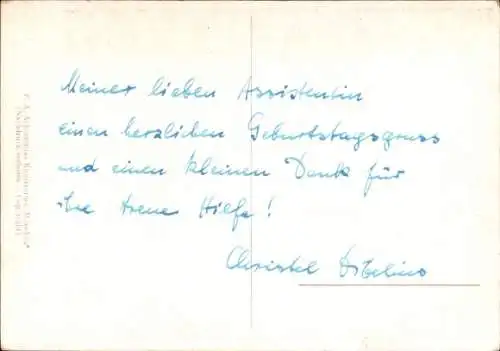 Meiner lieben Assistentin
einen herzlichen Geburtstagsgruss
und einen kleinen Dank für
ihre treue Hilfe!
Christel